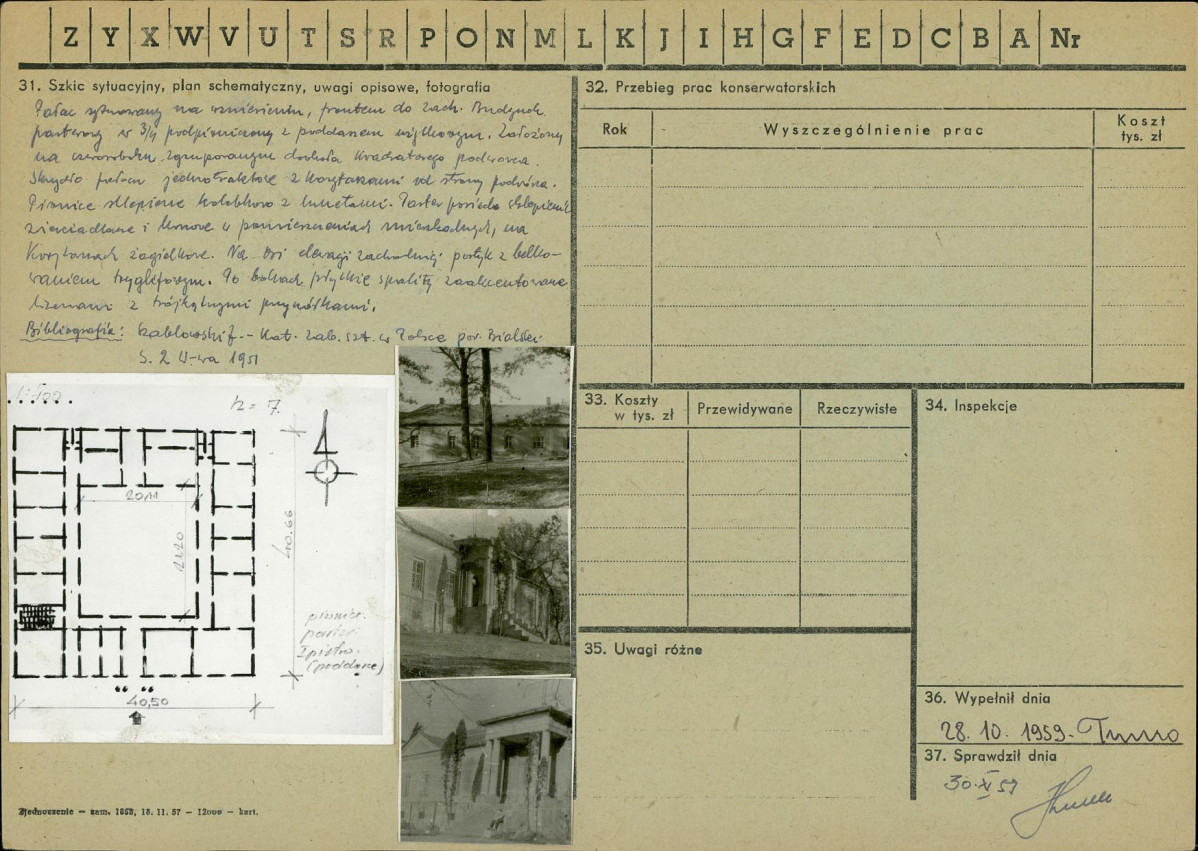 Z Y X W V U T S R P O N M L K J I H G F E D C B A Nr
31. Szkic sytuacyjny, plan schematyczny, uwagi opisowe, fotografia
Pałac sytuowany na wzniesieniu, frontem do zach. Budynek
parterowy w 3/4 podpiwniczony z poddaszem użytkowym. Założony
na czworoboku zgrupowanym dookoła kwadratowego podwórca.
Skrzydła pałacu jednotraktowe z korytarzami od strony podwórza.
Piwnice sklepione kolebkowo z lunetami. Parter posiada sklepienia
zwierciadlane i klonowe w pomieszczeniach mieszkalnych, na
korytarzach żagielkowe. Na osi elewacji zachodniej portyk z belko-
waniem tryglifowym. Po bokach płytkie ryzality zaakcentowane
lizenami z trójkątnymi przyczółkami.
Bibliografia: Szabłowski J. - Kat. Zab. szt. w Polsce pow. Bialski
S. 2 W-wa 1951
1:400
h = 7.
20,11
21.20
40.66
piwnice.
parter.
I piętro.
(poddasze)
40,50
Zjednoczenie — zam. 1858, 18. 11. 57 — 12000 — kart.
32. Przebieg prac konserwatorskich
Rok
Wyszczególnienie prac
Koszt
tys. zł
33. Koszty
w tys. zł
Przewidywane
Rzeczywiste
34. Inspekcje
35. Uwagi różne
36. Wypełnił dnia
28. 10. 1959.
37. Sprawdził dnia
30.XI 59